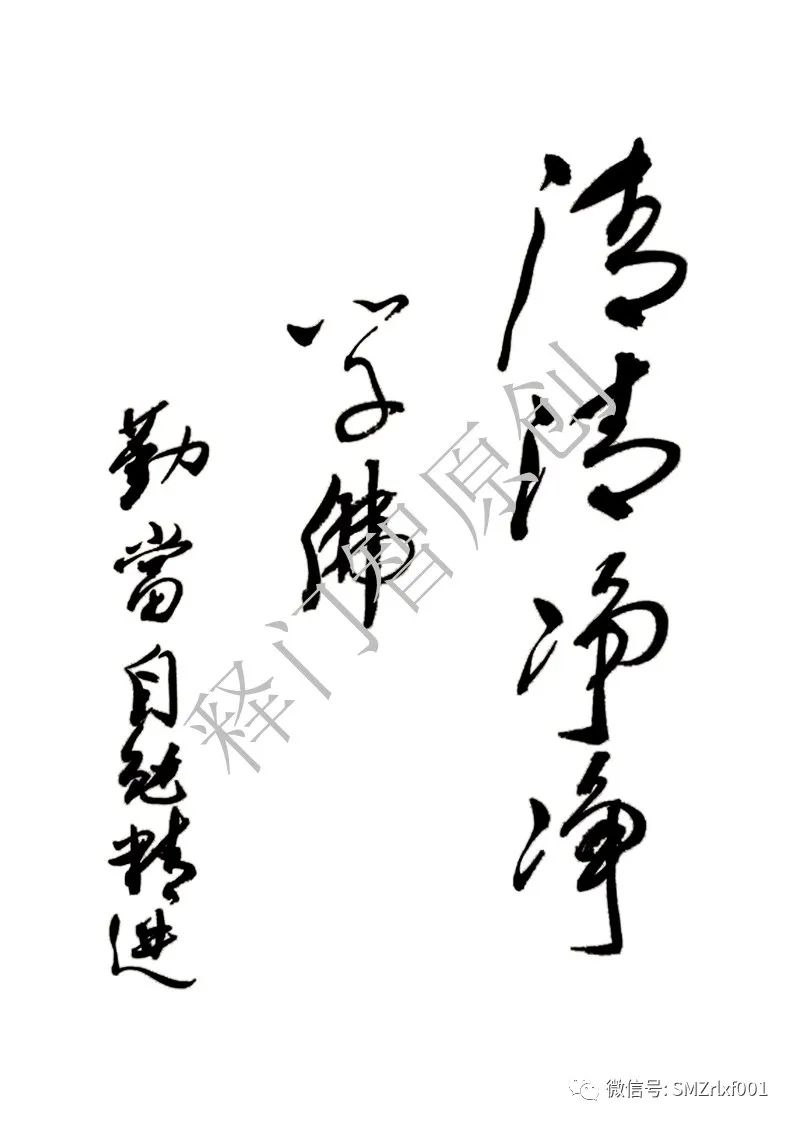 清清净净
学佛
勤當自勉精进
释门智原创
微信号: SMZrlxf001